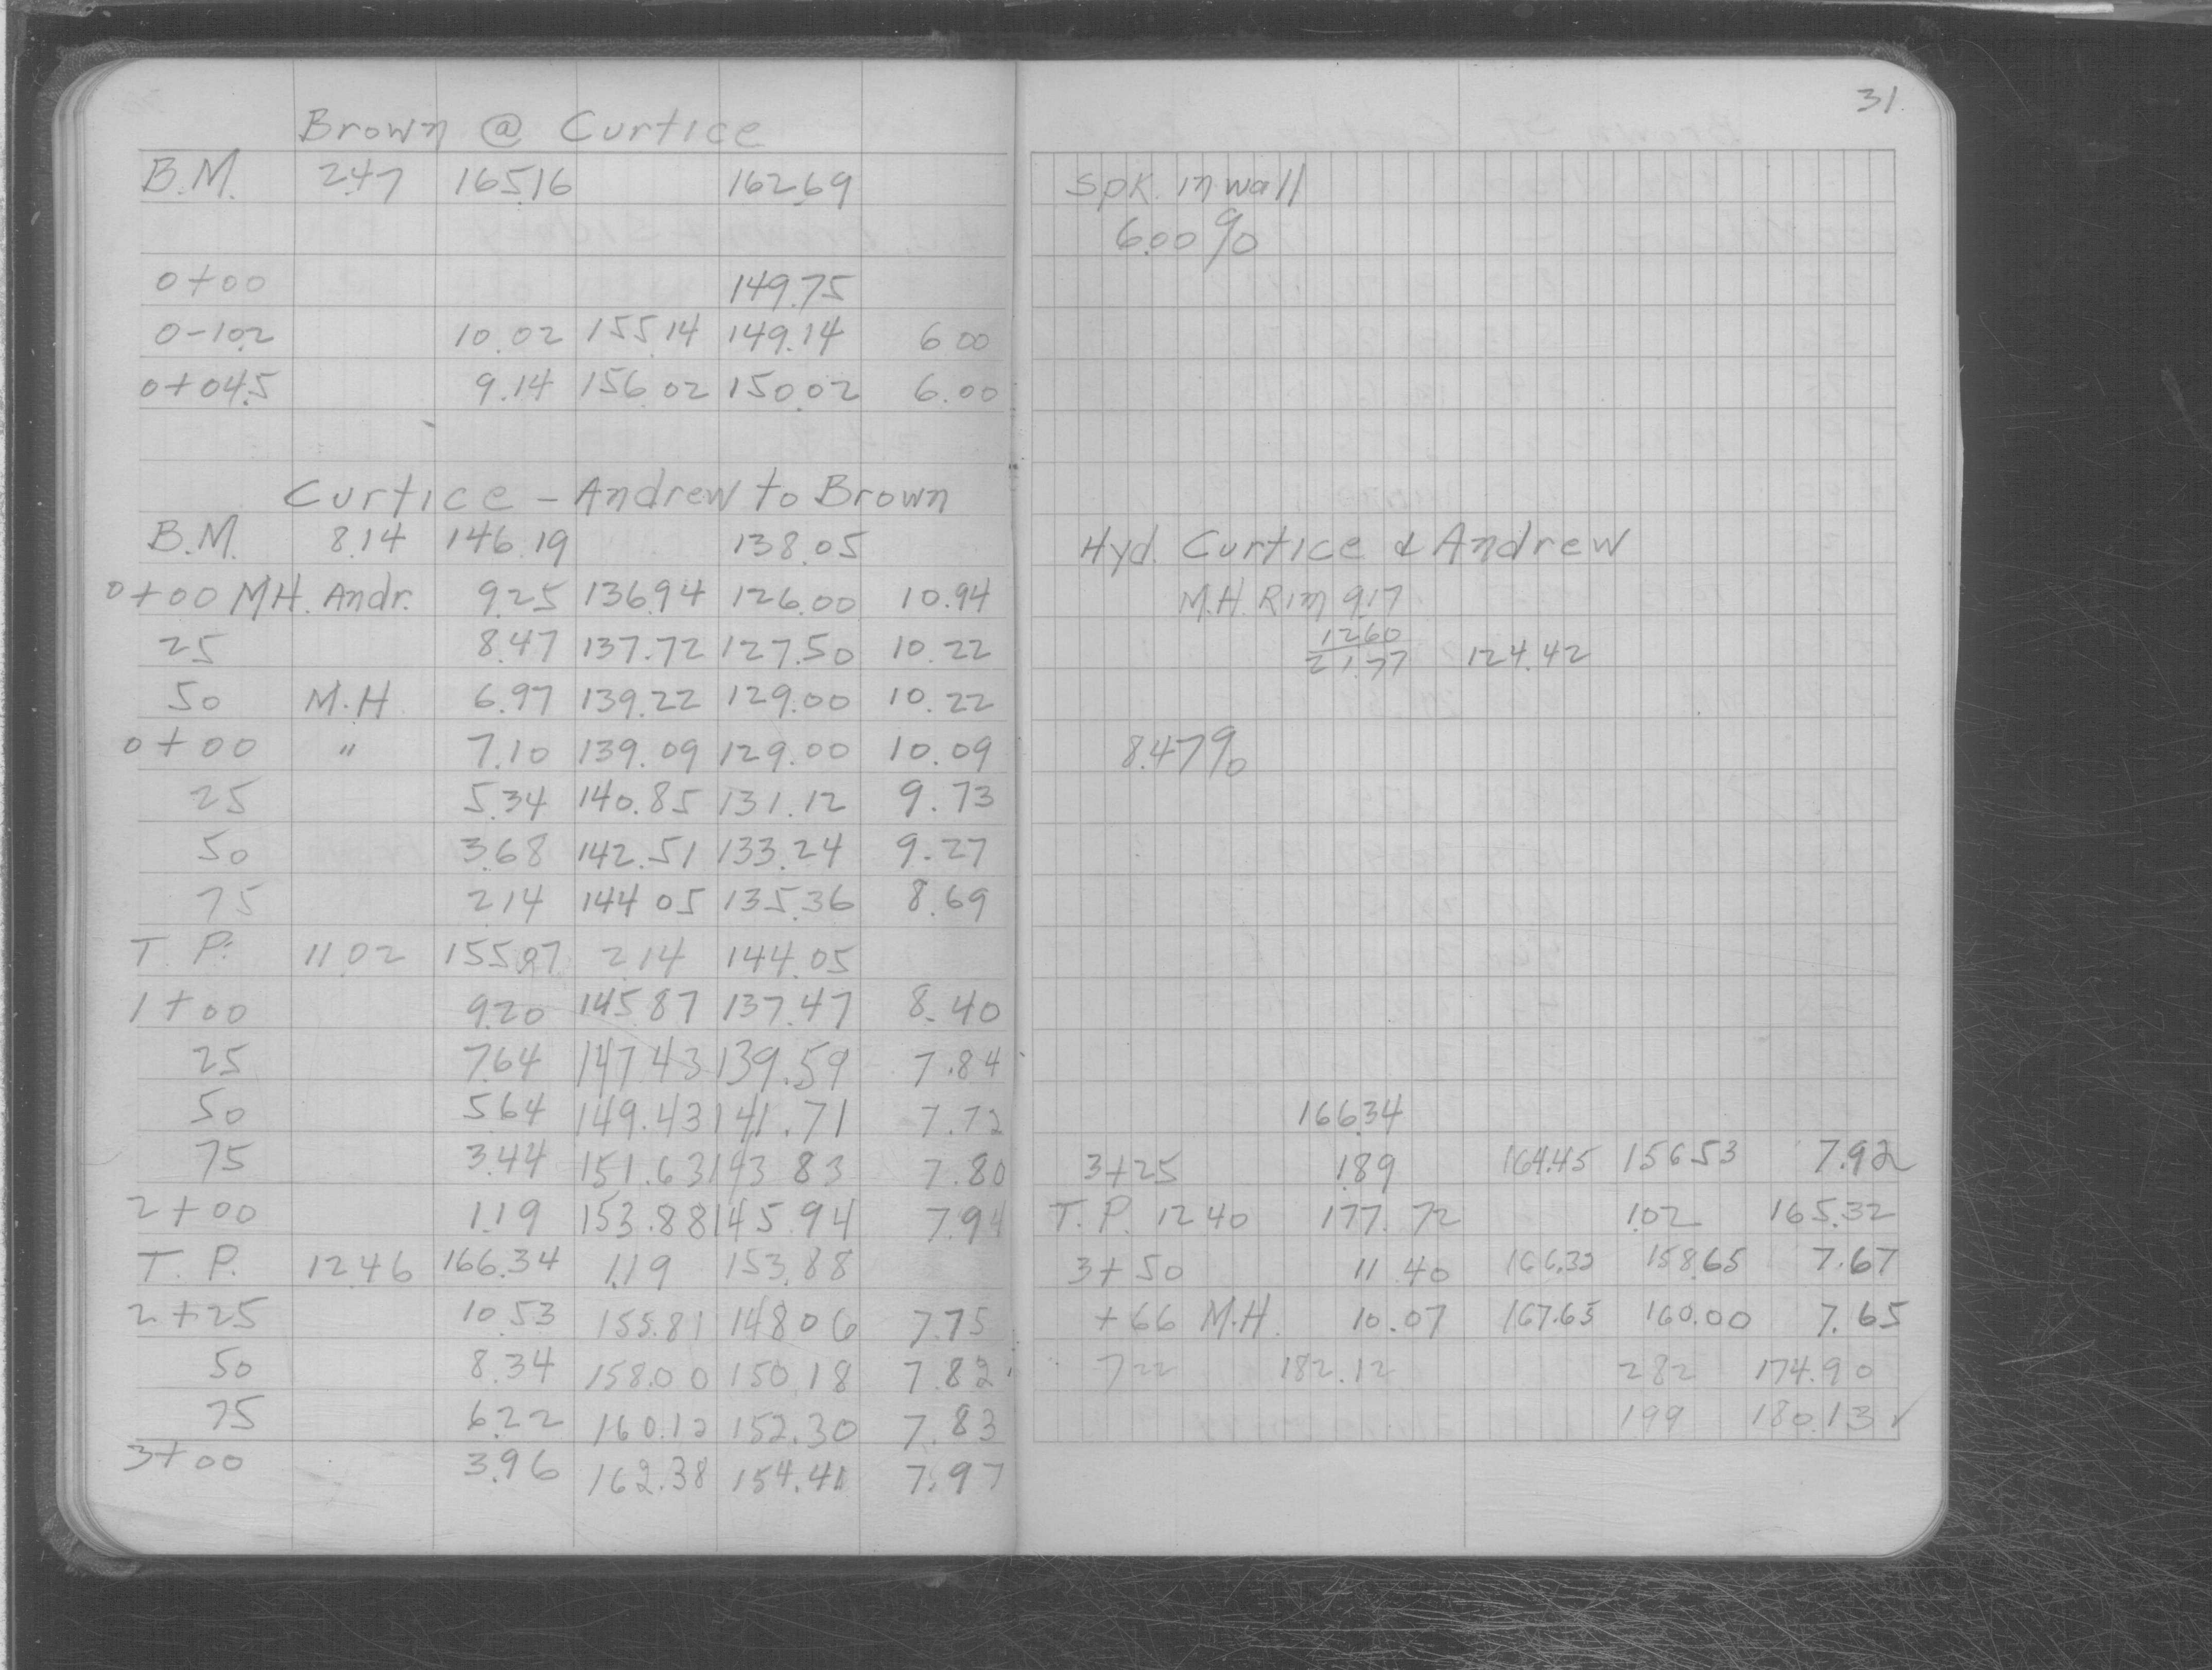 Brown @ Curtice
B.M. 2.47 165.16 162.69
0+00 149.75
0-10.2 10.02 155.14 149.14 6 00
0+04.5 9.14 156.02 150.02 6.00
Curtice - Andrew to Brown
B.M. 8.14 146.19 138.05
0+00 MH. Andr. 9.25 136.94 126.00 10.94
25 8.47 137.72 127.50 10.22
50 M.H 6.97 139.22 129.00 10.22
0+00 " 7.10 139.09 129.00 10.09
25 5.34 140.85 131.12 9.73
50 3.68 142.51 133.24 9.27
75 2.14 144.05 135.36 8.69
T. P. 11.02 155.07 2.14 144.05
1+00 9.20 145.87 137.47 8.40
25 7.64 147.43 139.59 7.84
50 5.64 149.43 141.71 7.72
75 3.44 151.63 143.83 7.80
2+00 1.19 153.88 145.94 7.94
T. P. 12.46 166.34 1.19 153.88
2+25 10.53 155.81 148.06 7.75
50 8.34 158.00 150.18 7.82
75 6.22 160.12 152.30 7.83
3+00 3.96 162.38 154.41 7.97
31.
Spk. in wall
6.00%
Hyd. Curtice & Andrew
M.H. Rim 9.17
12.60
21.77 124.42
8.47%
166.34
3+25 1.89 164.45 156.53 7.92
T. P. 12.40 177.72 1.02 165.32
3+50 11.40 166.32 158.65 7.67
+66 M.H. 10.07 167.65 160.00 7.65
7 22 182.12 2 82 174.90
1 99 180.13 ✓